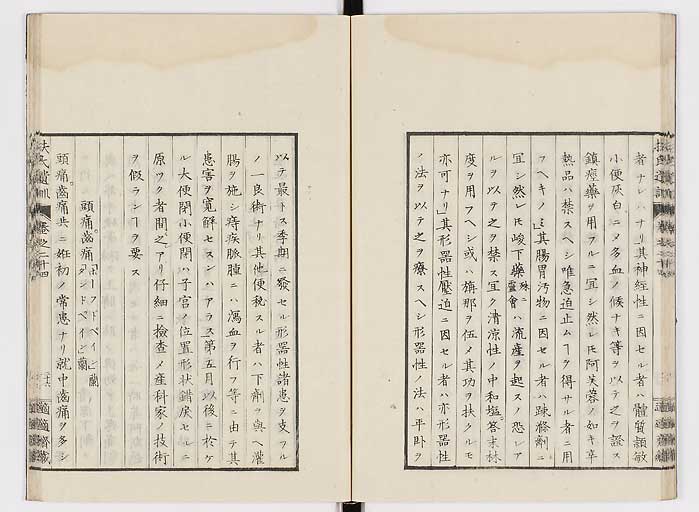 者ナレハナリ其神経性ニ因セル者ハ體質頴敏
小便灰白ニメ多血ノ候ナキ等ヲ以テ之ヲ證ス
鎮痙藥ヲ用フルニ宜シ然レ𪜈阿芙蓉ノ如キ辛
熱品ハ禁スヘシ唯急迫止ムヿヲ得サル者ニ用
フヘキノミ其腸胃汚物ニ因セル者ハ疎滌劑ニ
宜シ然レ𪜈峻下藥殊ニ蘆會ハ流産ヲ起スノ恐レア
ルヲ以テ之ヲ禁ス宜ク清涼性ノ中和塩答末林
度ヲ用フヘシ或ハ旃那ヲ伍メ其功ヲ扶クルモ
亦可ナリ其形器性壓迫ニ因セル者ハ亦形器性
ノ法ヲ以テ之ヲ療スヘシ形器性ノ法ハ平卧ヲ
扶氏遺訓 卷之二十四
以テ最トス季期ニ發セル形器性諸患ヲ支フル
ノ一良術ナリ其他便秘スル者ハ下劑ヲ與ヘ灌
腸ヲ施シ痔疾脈腫ニハ瀉血ヲ行フ等ニ由テ其
患害ヲ寛解セスンハアラス第五月以後ニ於ケ
ル大便閉小便閉ハ子宮ノ位置形状錯戻セルニ
原ツク者間之アリ仔細ニ檢査メ産科家ノ技術
ヲ假ランヿヲ要ス
頭痛。齒痛。ホーフドペイン蘭 タンドペイン蘭
頭痛齒痛共ニ姙初ノ常患ナリ就中齒痛ヲ多シ
適適齋藏